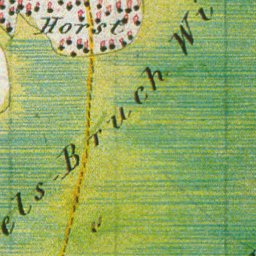 Horst
els-Bruch Wi